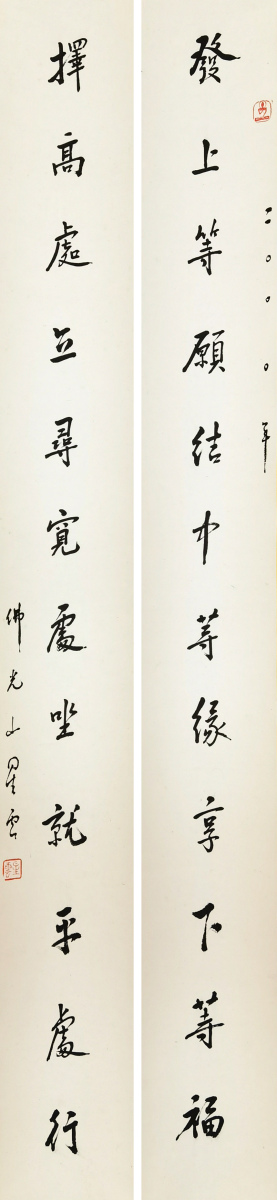 二〇〇〇年
發上等願結中等緣享下等福
擇高處立尋寬處坐就平處行
佛光山星雲